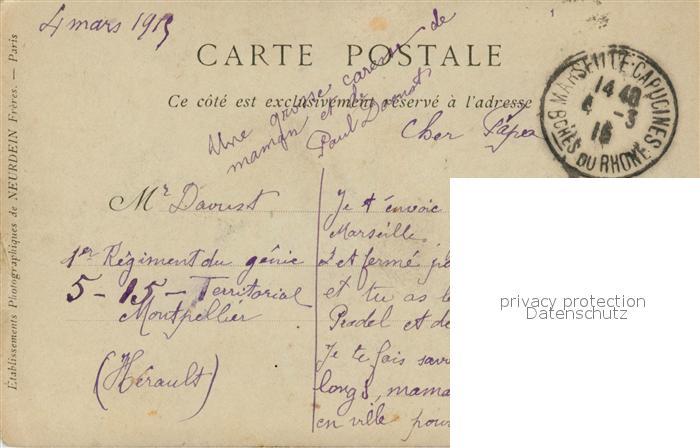 4 mars 1915
CARTE POSTALE
Ce côté est exclusivement réservé à l'adresse
Une grosse caresse de
maman et de
Paul Davoust
Cher Papa
MARSEILLE-CAPUCINES
14 40
4 - 3
15
BCHES DU RHONE
Mr Davoust
1er Régiment du génie
5 - 15 - Territorial
Montpellier
(Hérault)
Je t'envoie
Marseille
et fermé
et tu as
Pradel et de
Je te fais
longs, mama
en ville pour
Établissements Photographiques de NEURDEIN Frères. — Paris
privacy protection
Datenschutz